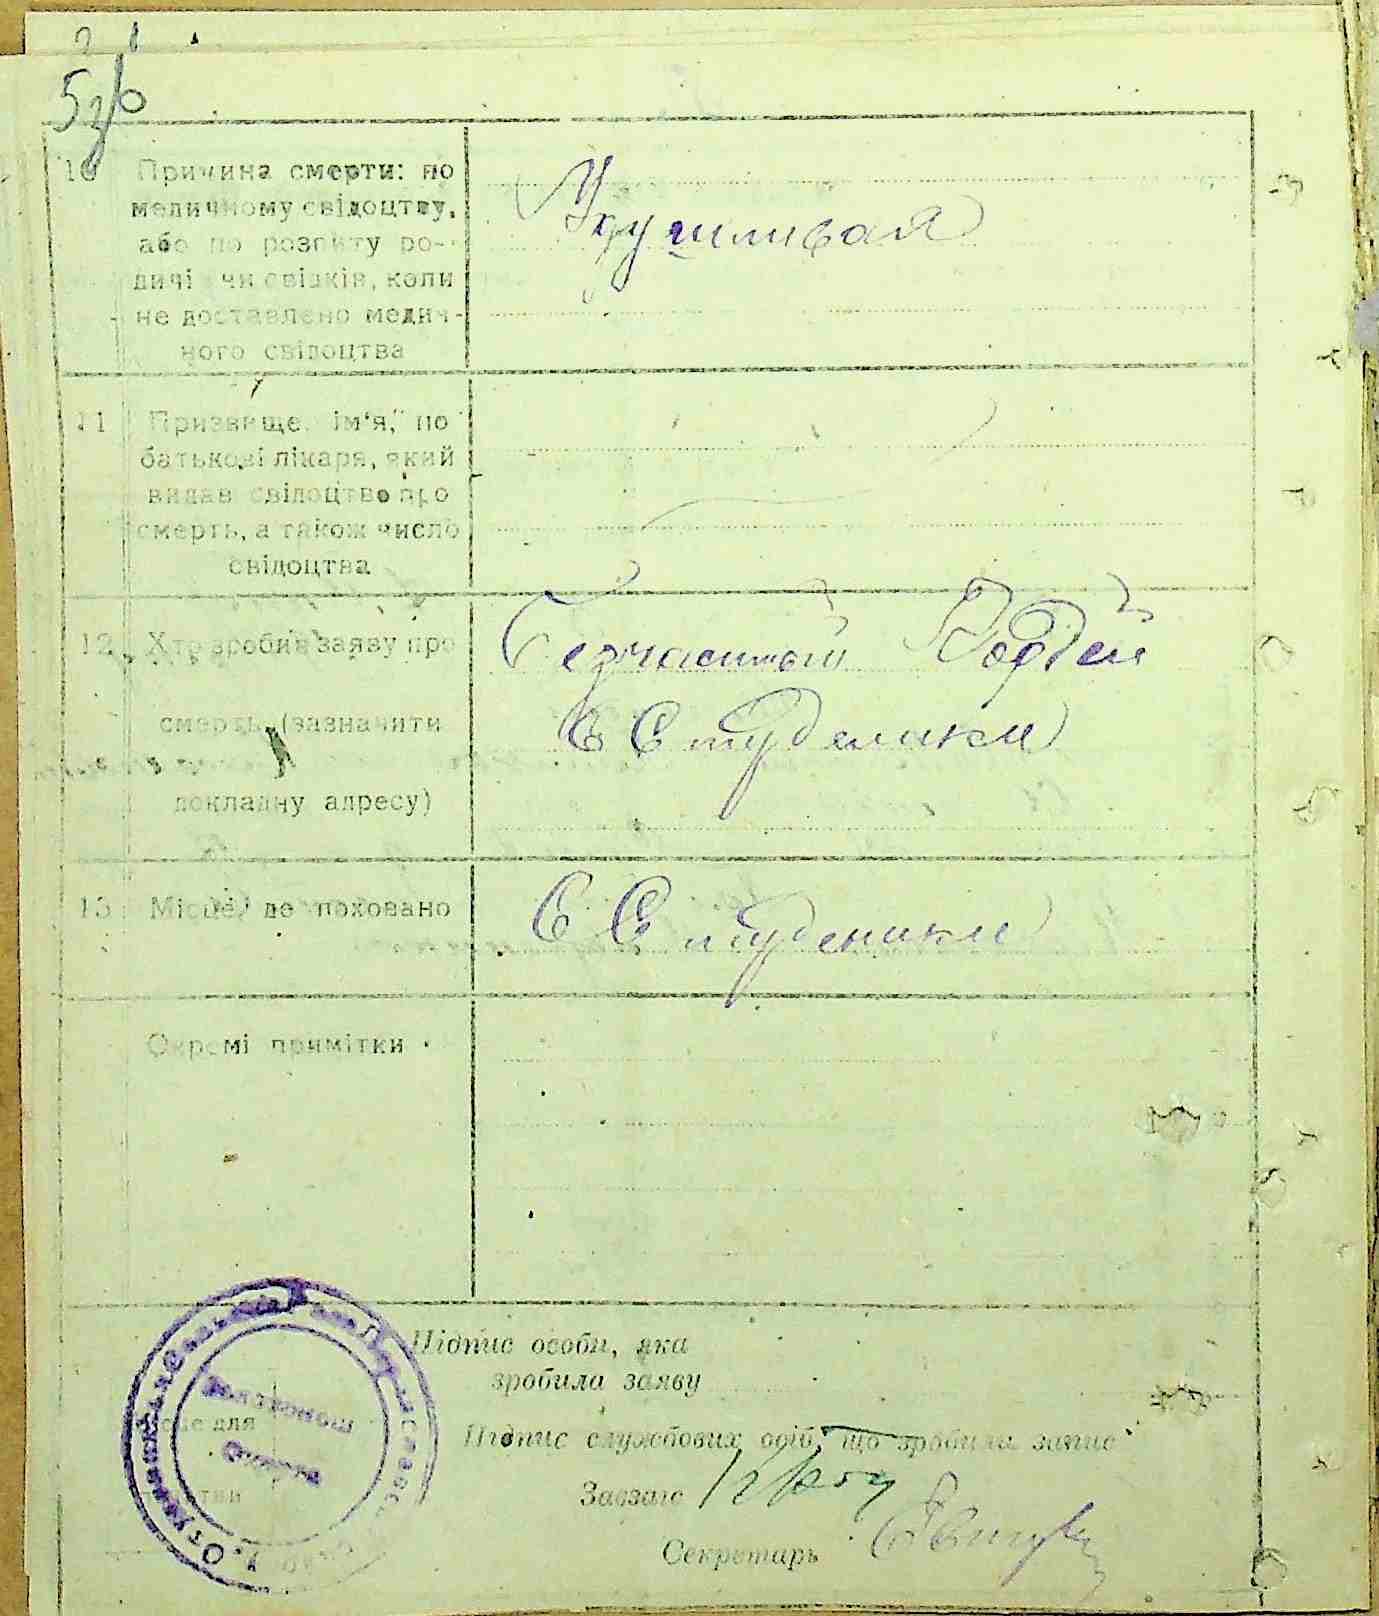 10 Причина смерти: по
медичному свідоцтву,
або по розпиту ро-
дичі чи свідків, коли
не доставлено медич-
ного свідоцтва
Удушливая
11 Призвище, ім'я, по
батькові лікаря, який
видав свідоцтво про
смерть, а також число
свідоцтва
12 Хто зробив заяву про
смерть (зазначити
докладну адресу)
Безчастный Гордей
С Студеники
13 Місце, де поховано
С Студеники
Окремі примітки
Підпис особи, яка
зробила заяву
Підпис службових осіб, що зробили запис
Завзагс
Секретарь